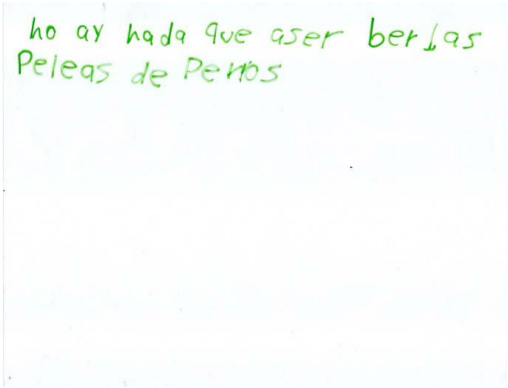 no ay nada que aser ber las
Peleas de Perros